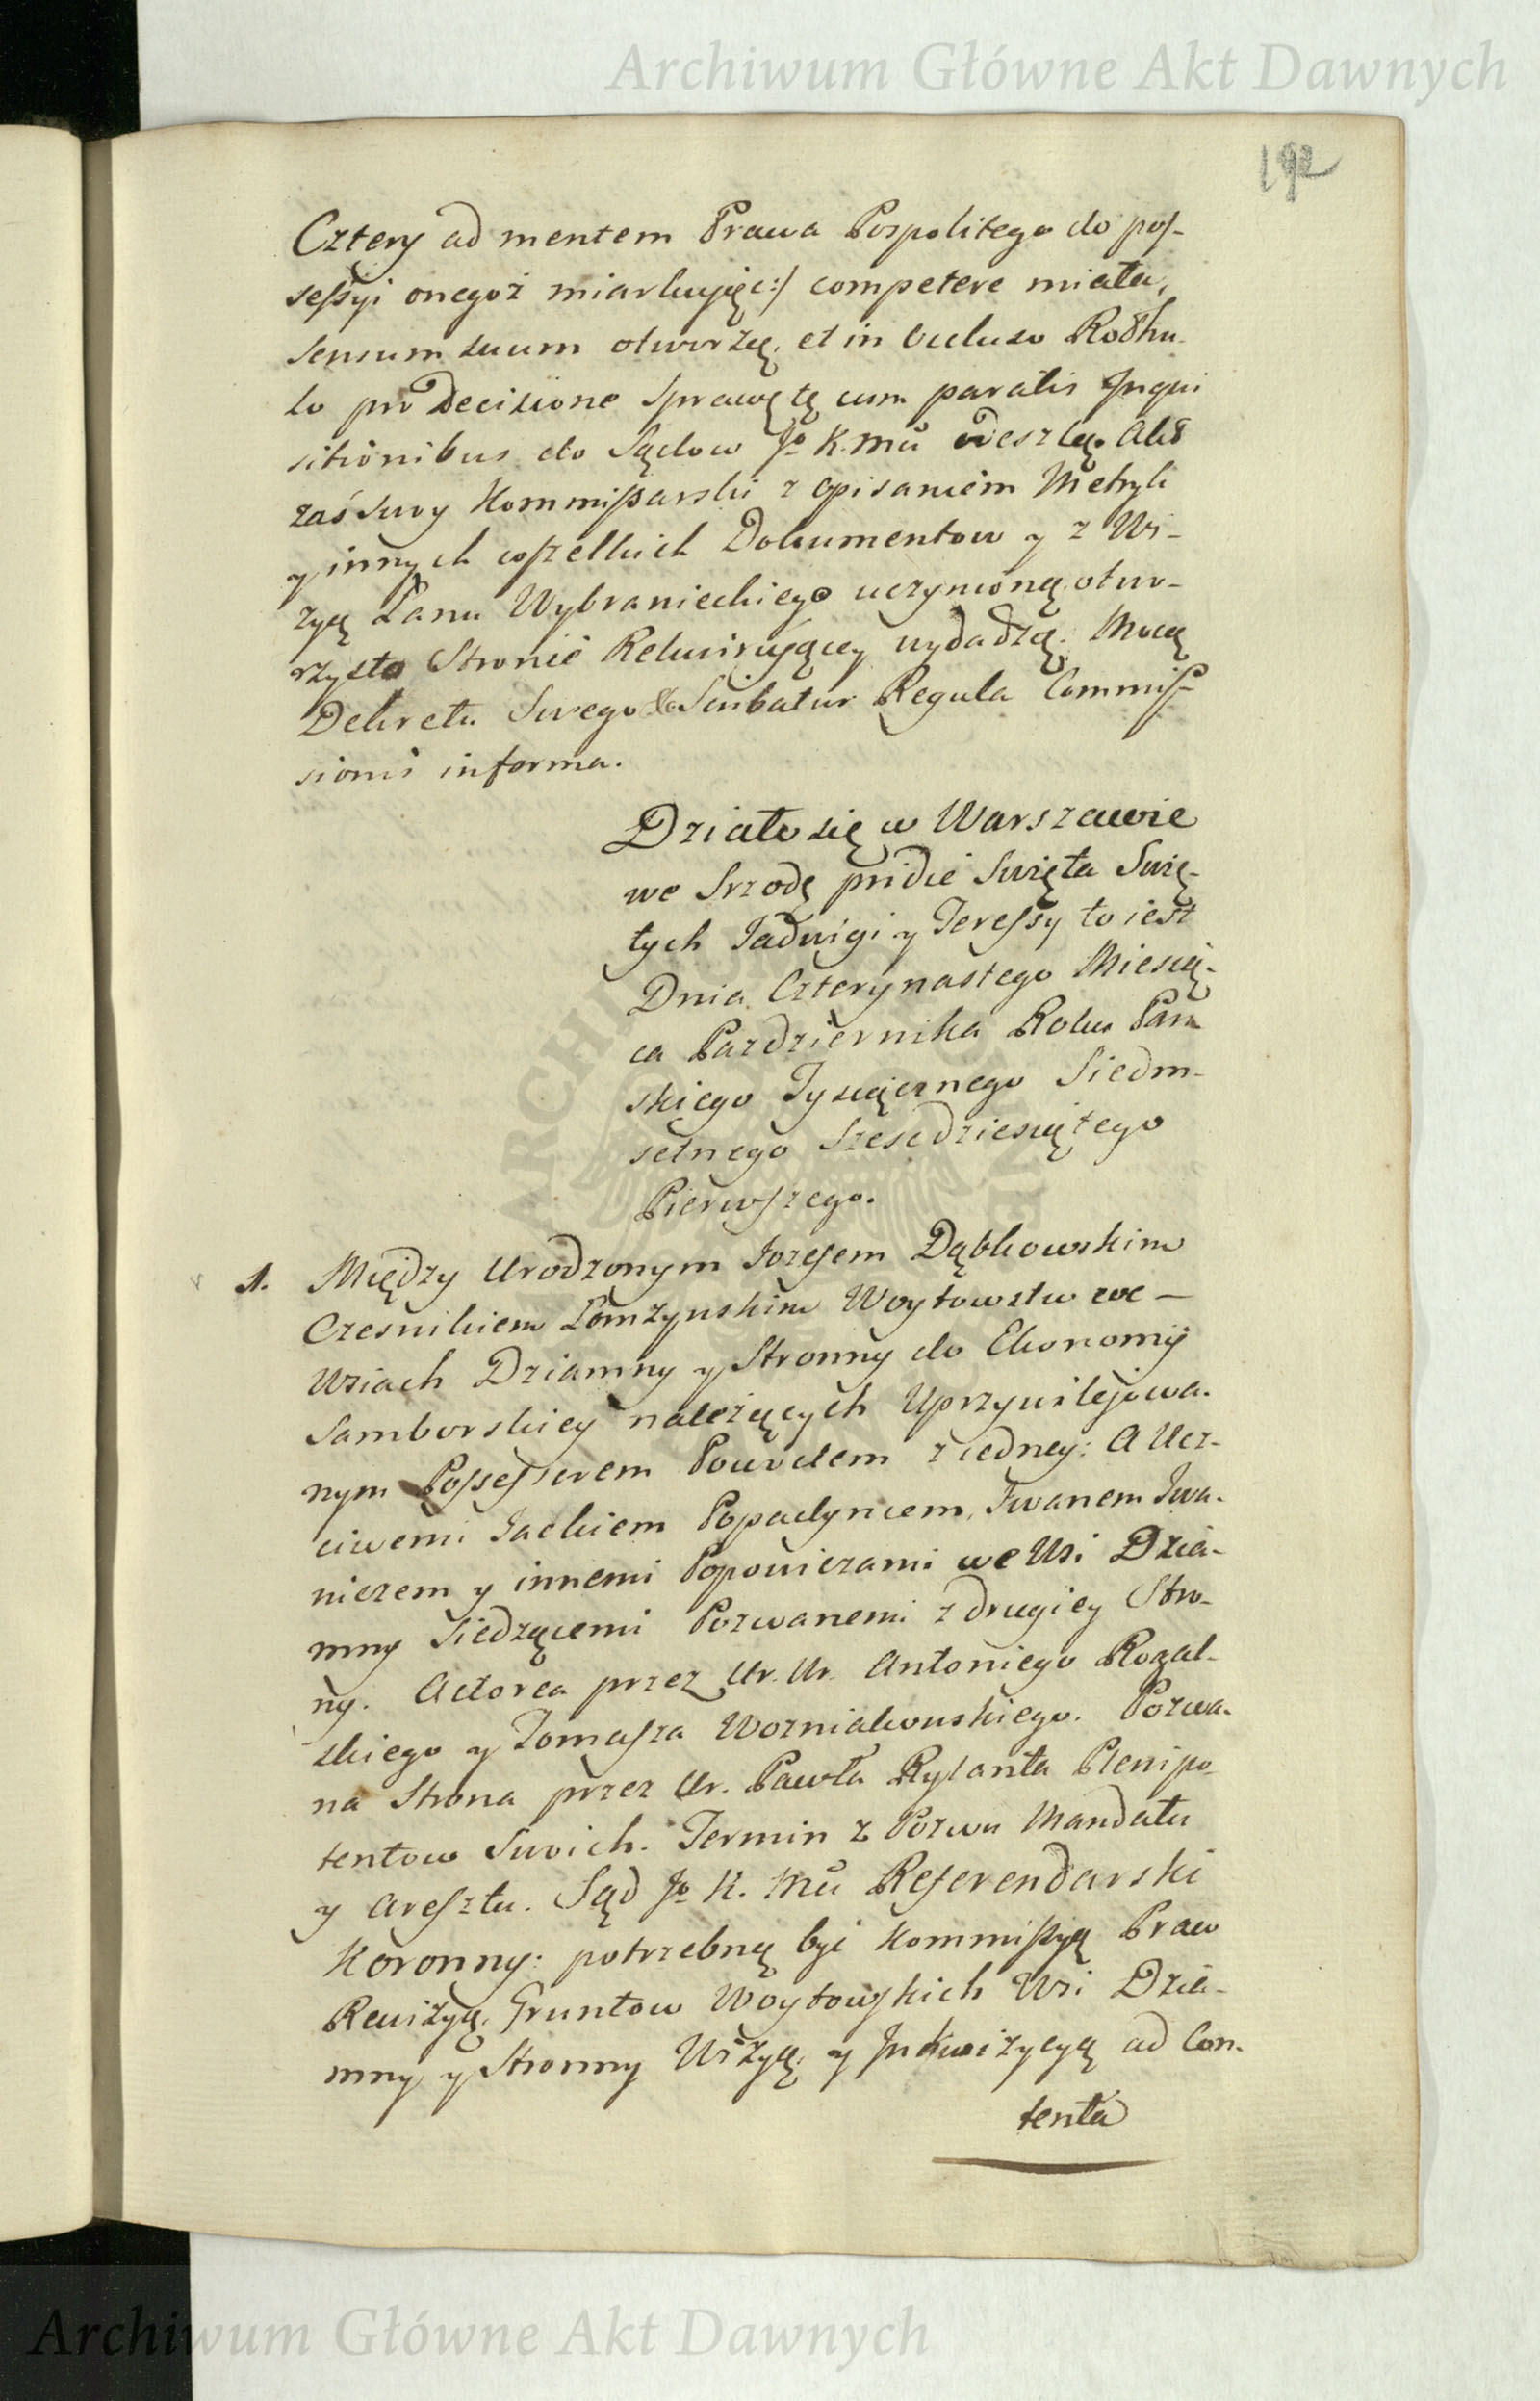 Archiwum Główne Akt Dawnych
192
Cztery ad mentem Prawa Pospolitego do pos-
sessyi onegoż miarkuięc:/ competere miała,
sensum suum otworzą, et in occluso Rothu-
lo pro Decisione sprawę tę cum paratis Inqui
sitionibus do Sądow Jo K. Mci odeszlą. Akt
zaś swoy Kommissarski z opisaniem Metryk
y innych wszelkich Dokumentow y z Wi-
zyą Łanu Wybranieckiego uczynioną otwo-
rzysto Stronie Rekwiruiącey wydadzą. Mocą
Dekretu Swego Scribatur Regula Commis-
sionis in forma.
Działo się w Warszawie
we Srzodę pridie Swięta Swię-
tych Jadwigi y Teressy to iest
Dnia Czterynastego Miesią-
ca Pazdziernika Roku Pan
skiego Tysiącznego Siedm-
setnego Szescdziesiątego
Pierwszego.
1. Między Urodzonym Jozefem Dąbkowskim
Czesnikiem Łomżynskim Woytowstw we -
Wsiach Dziamny y Stronny do Ekonomij
Samborskiey należących Uprzywilejowa-
nym Possessorem Powodem z iedney: A Ucz-
ciwemi Jackiem Popadyncem, Iwanem Iwa-
niczem y innemi Popowiczami we Wsi Dzia-
mny Siedzącemi Pozwanemi z drugiey Stro-
ny. Actorea przez Ur. Ur. Antoniego Rozal-
skiego y Tomasza Wozniakowskiego. Pozwa-
na Strona przez Ur. Pawła Rylanta Plenipo-
tentow Swoich. Termin z Pozwu Mandatu
y Aresztu. Sąd Jo K. Mci Referendarski
Koronny: potrzebną być Kommissyą Praw
Rewizyą, Gruntow Woytowskich Wsi Dzia-
mny y Stronny Wizyą, y Inkwizycyą ad Con-
tenta
Archiwum Główne Akt Dawnych